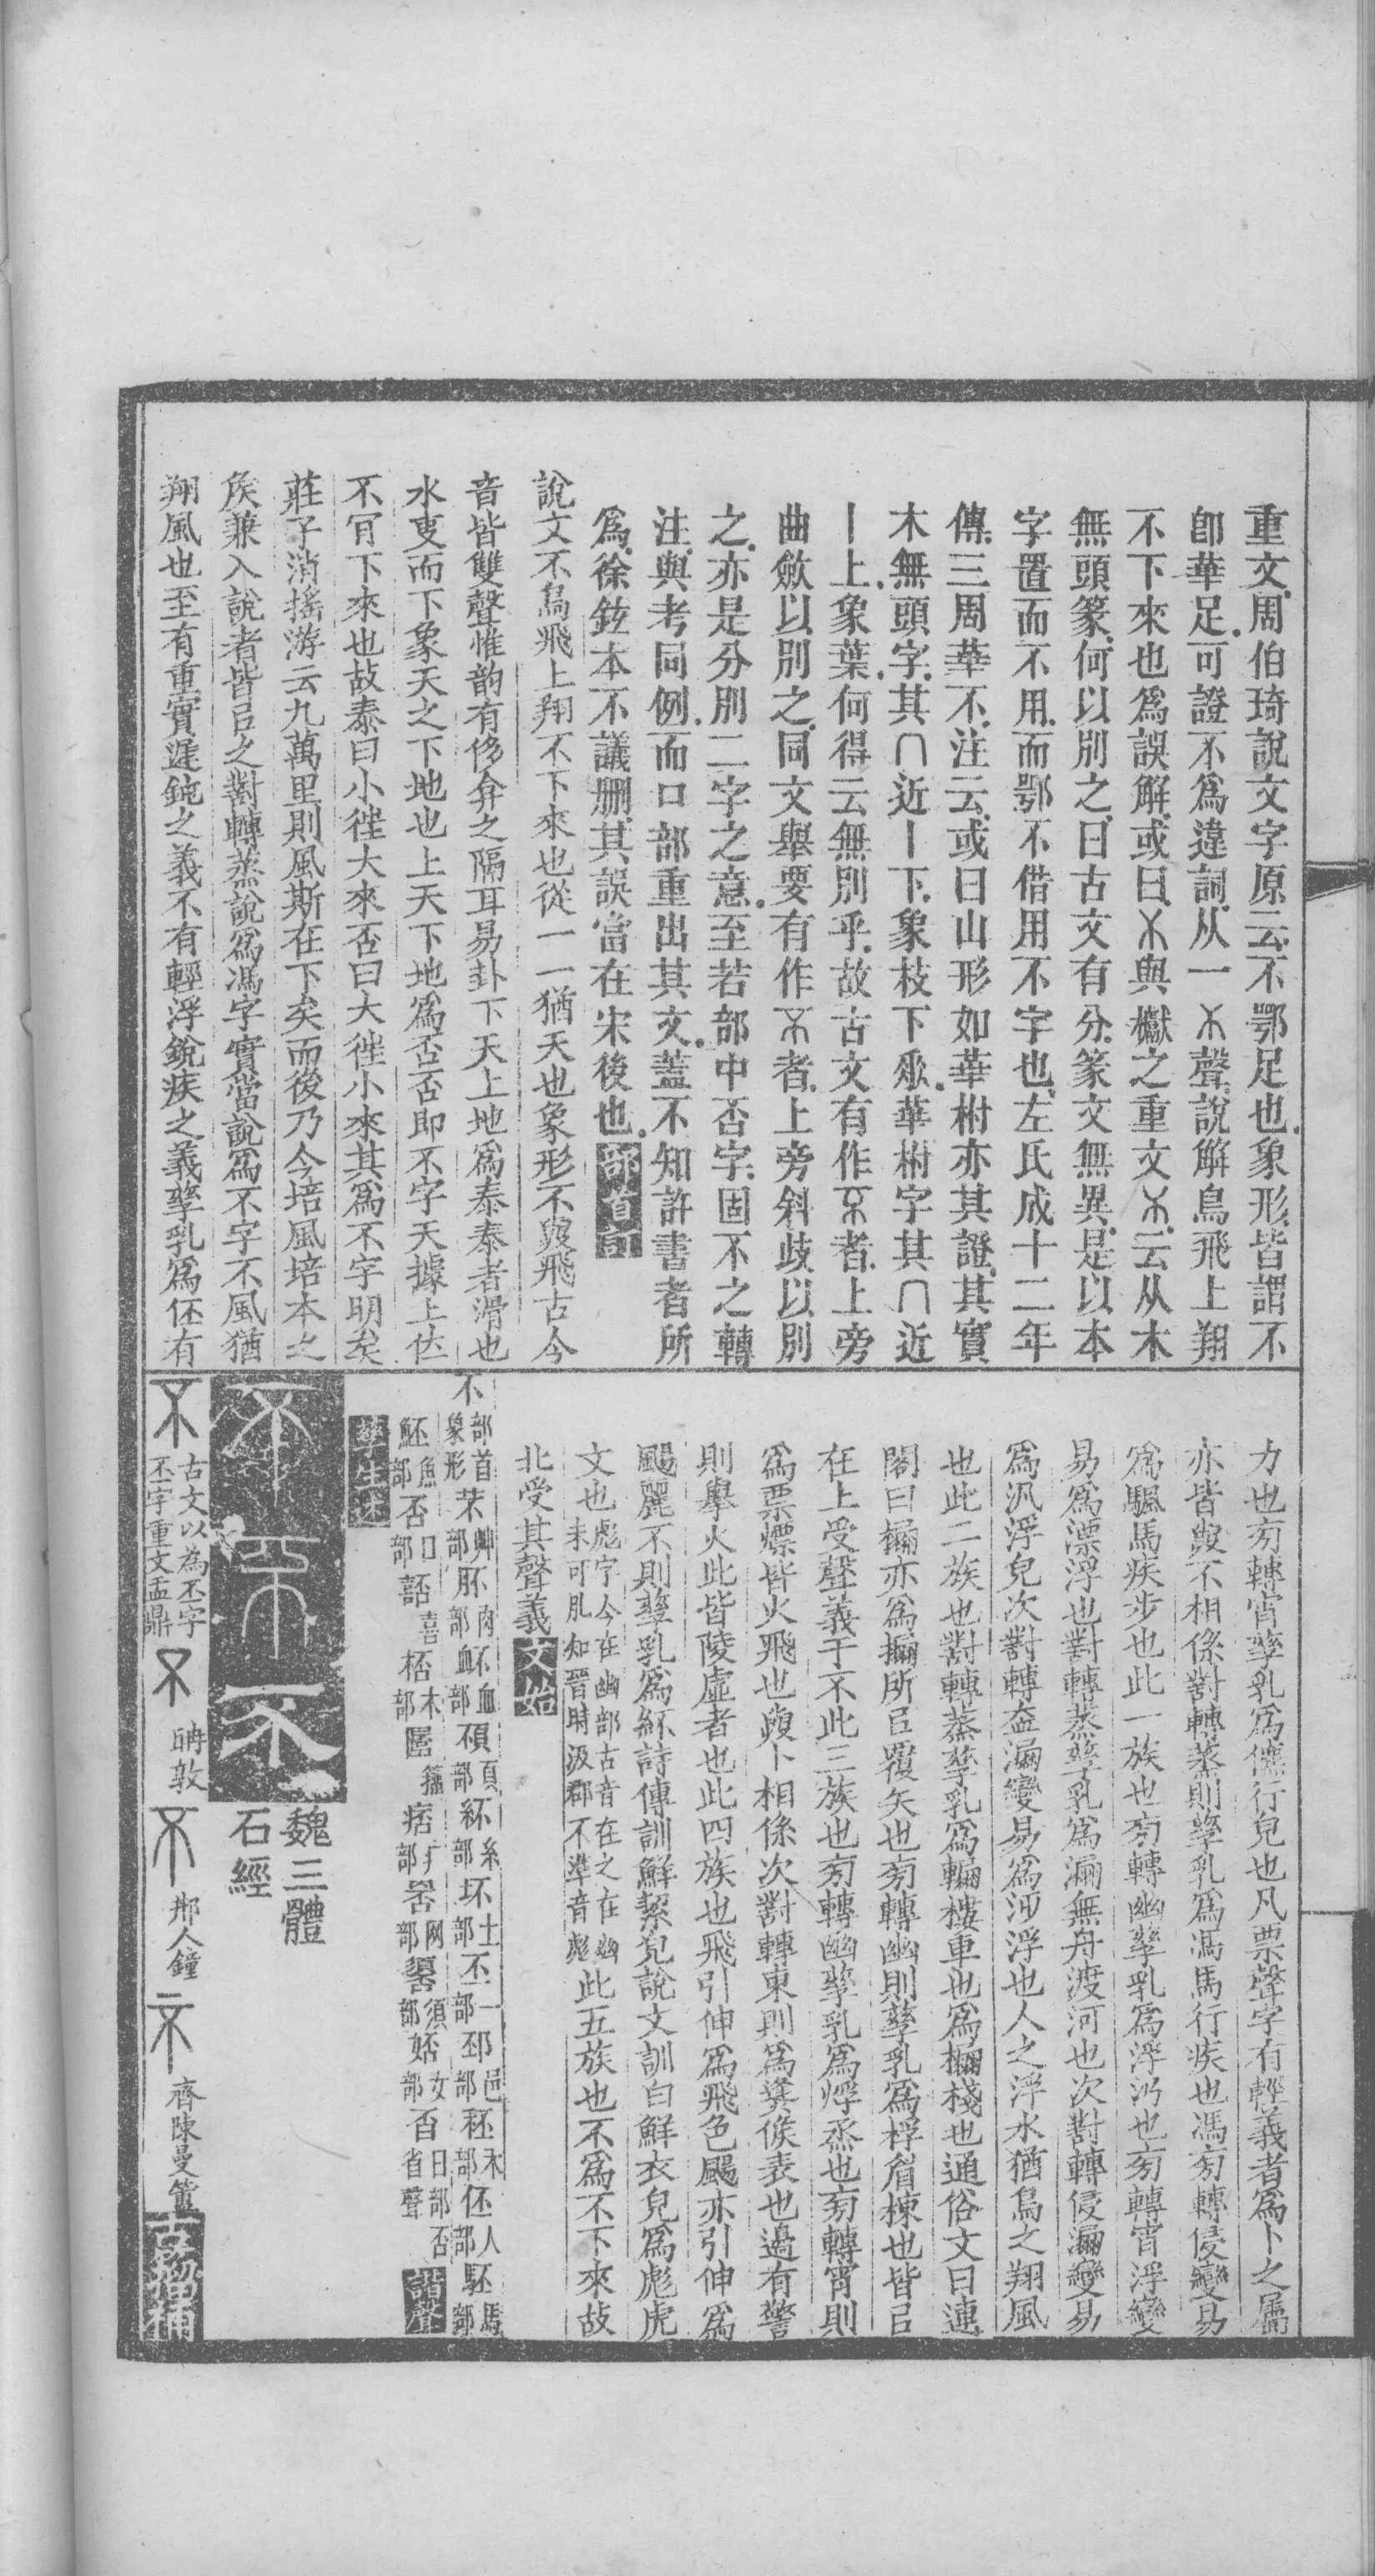 重文周伯琦說文字原云不鄂足也象形皆謂不
卽華足可證不爲違詞从一聲說解鳥飛上翔
不下來也爲誤解或曰與櫱之重文云从木
無頭篆何以別之曰古文有分篆文無異是以本
字置而不用而鄂不借用不字也左氏成十二年
傳三周華不注云或曰山形如華柎亦其證其實
木無頭字其∩近丨下象枝下垂華柎字其∩近
丨上象葉何得云無別乎故古文有作者上旁
曲斂以別之同文舉要有作者上旁斜歧以別
之亦是分別二字之意至若部中否字固不之轉
注與考同例而口部重出其文蓋不知許書者所
爲徐鉉本不議刪其誤當在宋後也部首訂
說文不鳥飛上翔不下來也從一一猶天也象形不與飛古今
音皆雙聲惟韵有侈弇之隔耳易卦下天上地爲泰泰者滑也
水叓而下象天之下地也上天下地爲否否即不字天據上位
不肎下來也故泰曰小徃大來否曰大徃小來其爲不字明矣
莊子消搖游云九萬里則風斯在下矣而後乃今培風培本之
矦兼入說者皆㠯之對轉蒸說爲馮字實當說爲不字不風猶
翔風也至有重實遲鈍之義不有輕浮銳疾之義孳乳爲伾有
力也旁轉宵孳乳爲儦行皃也凡票聲字有輕義者爲卜之屬
亦皆與不相係對轉蒸則孳乳爲馮馬行疾也馮旁轉侵變易
爲颿馬疾步也此一族也旁轉幽孳乳爲浮汎也旁轉宵浮變
易爲漂浮也對轉蒸孳乳爲淜無舟渡河也次對轉侵淜變易
爲汎浮皃次對轉盍淜變易爲泛浮也人之浮水猶鳥之翔風
也此二族也對轉蒸孳乳爲輣樓車也爲棚棧也通俗文曰連
閣曰棚亦爲掤所㠯覆矢也旁轉幽則孳乳爲桴眉棟也皆㠯
在上受聲義于不此三族也旁轉幽孳乳爲烰烝也旁轉宵則
爲票熛皆火飛也與卜相係次對轉東則爲㷭候表也邊有警
則舉火此皆陵虛者也此四族也飛引伸爲飛色颺亦引伸爲
颺麗不則孳乳爲紑詩傳訓鮮絜皃說文訓白鮮衣皃爲彪虎
文也彪字今在幽部古音在之在幽
未可肊知晉時汲郡不準音彪此五族也不爲不下來故
北受其聲義文始
不部首
象形芣艸部肧肉部衃血部頄頁部紑糸部坏土部丕一部邳邑部秠禾部伾人部駓馬部
魾魚部否口部嚭喜部桮木部匿籀痞疒部罘网部䫠須部娝女部百日部否
省聲諧聲
孳生述
魏三體
石經
古文以為丕字
丕字重文盂鼎
聃敦
邾人鐘
齊陳曼簠古籀補